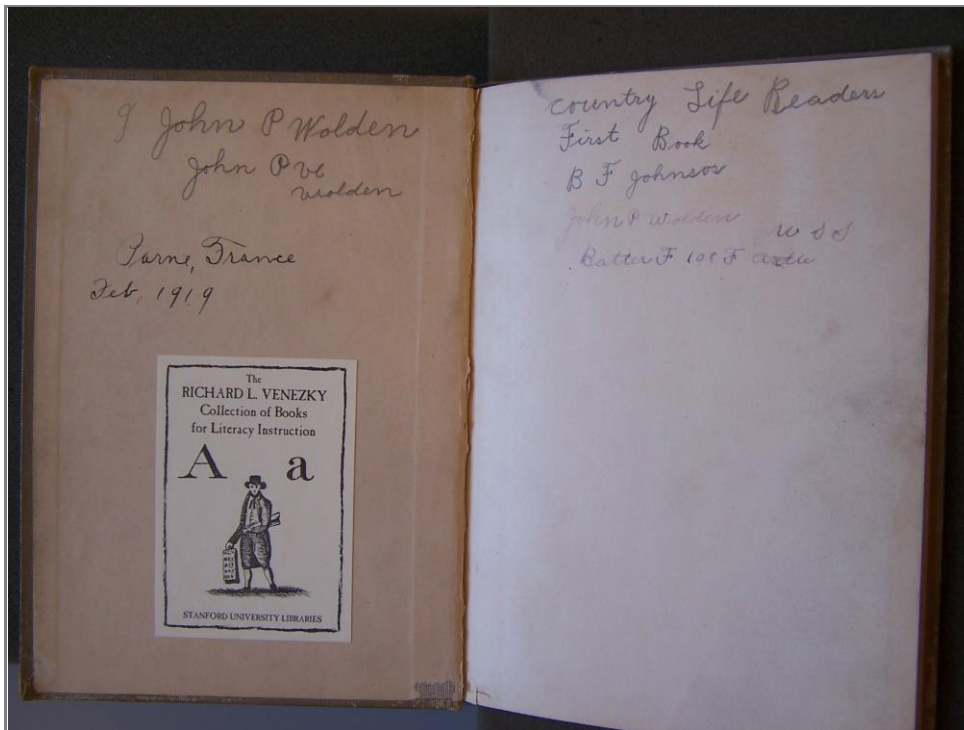 I John P Wolden
John P ve
Wolden
Parne, France
Feb, 1919
The
RICHARD L. VENEZKY
Collection of Books
for Literacy Instruction
A a
STANFORD UNIVERSITY LIBRARIES
Country Life Readers
First Book
B F Johnson
John P Wolden
W S S
Batter F 108 F